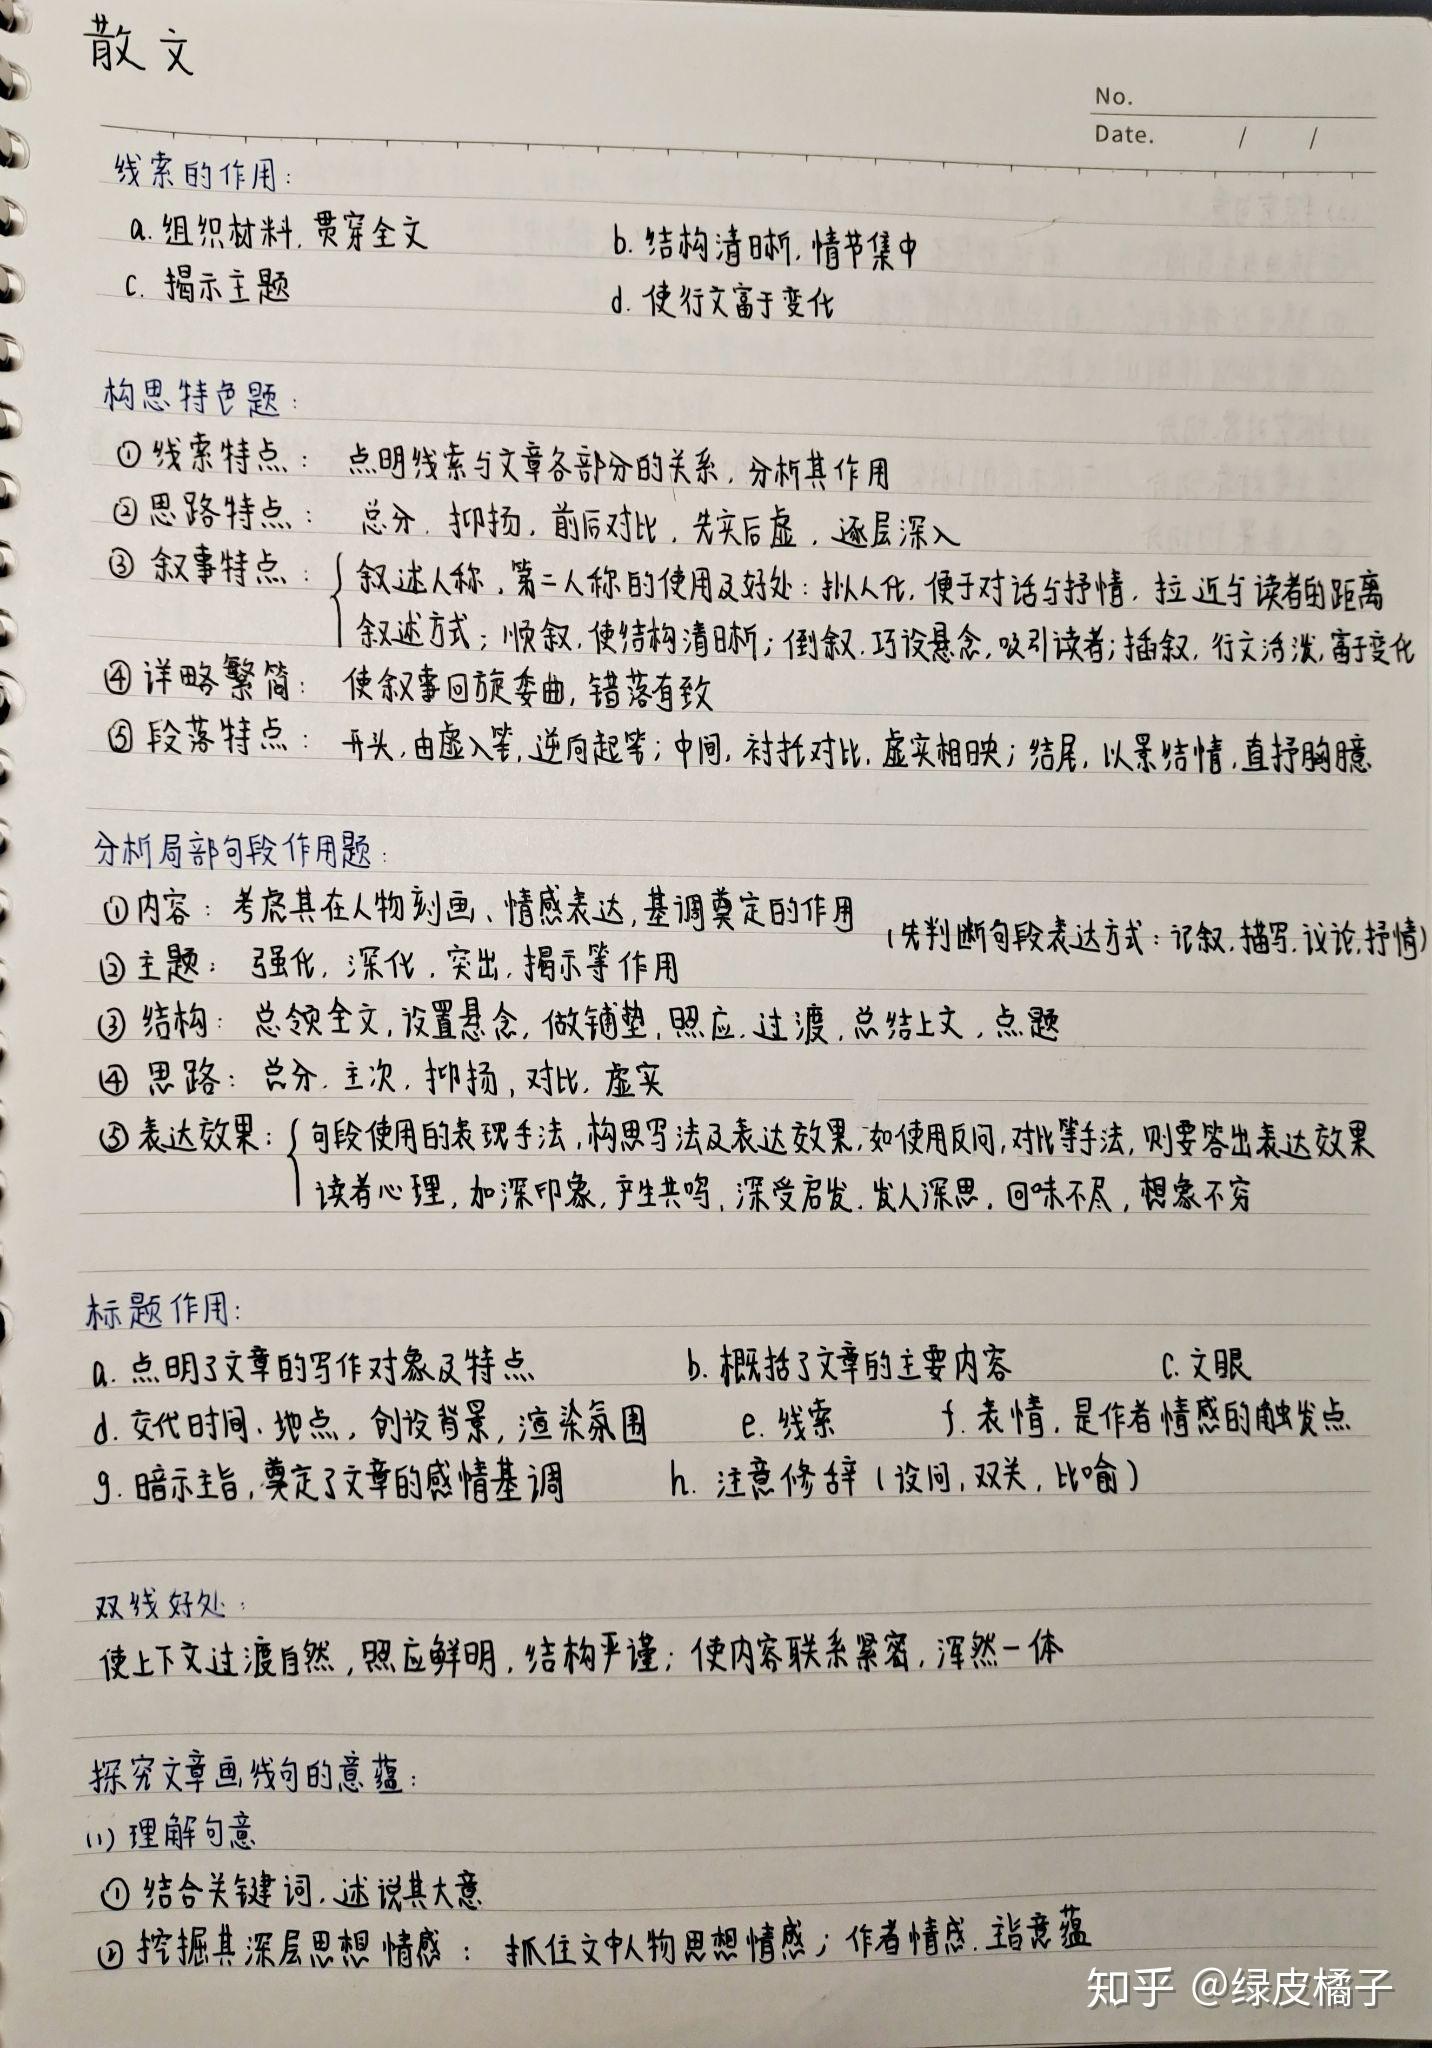 散文
No.
Date. / /
线索的作用：
a. 组织材料，贯穿全文 b. 结构清晰，情节集中
c. 揭示主题 d. 使行文富于变化
构思特色题：
① 线索特点： 点明线索与文章各部分的关系，分析其作用
② 思路特点： 总分，抑扬，前后对比，先实后虚，逐层深入
③ 叙事特点： 叙述人称，第二人称的使用及好处：拟人化，便于对话与抒情，拉近与读者的距离
叙述方式；顺叙，使结构清晰；倒叙，巧设悬念，吸引读者；插叙，行文活泼，富于变化
④ 详略繁简： 使叙事回旋委曲，错落有致
⑤ 段落特点： 开头，由虚入笔，逆向起笔；中间，衬托对比，虚实相映；结尾，以景结情，直抒胸臆
分析局部句段作用题：
①内容：考虑其在人物刻画、情感表达，基调奠定的作用 （先判断句段表达方式：记叙，描写，议论，抒情）
② 主题： 强化，深化，突出，揭示等作用
③ 结构： 总领全文，设置悬念，做铺垫，照应，过渡，总结上文，点题
④ 思路：总分，主次，抑扬，对比，虚实
⑤ 表达效果： 句段使用的表现手法，构思写法及表达效果，如使用反问，对比等手法，则要答出表达效果
读者心理，加深印象，产生共鸣，深受启发，发人深思，回味不尽，想象不穷
标题作用：
a. 点明了文章的写作对象及特点 b. 概括了文章的主要内容 c. 文眼
d. 交代时间、地点，创设背景，渲染氛围 e. 线索 f. 表情，是作者情感的触发点
g. 暗示主旨，奠定了文章的感情基调 h. 注意修辞（设问，双关，比喻）
双线好处：
使上下文过渡自然，照应鲜明，结构严谨；使内容联系紧密，浑然一体
探究文章画线句的意蕴：
(1) 理解句意
① 结合关键词，述说其大意
② 挖掘其深层思想情感： 抓住文中人物思想情感；作者情感，主旨意蕴
知乎 @绿皮橘子